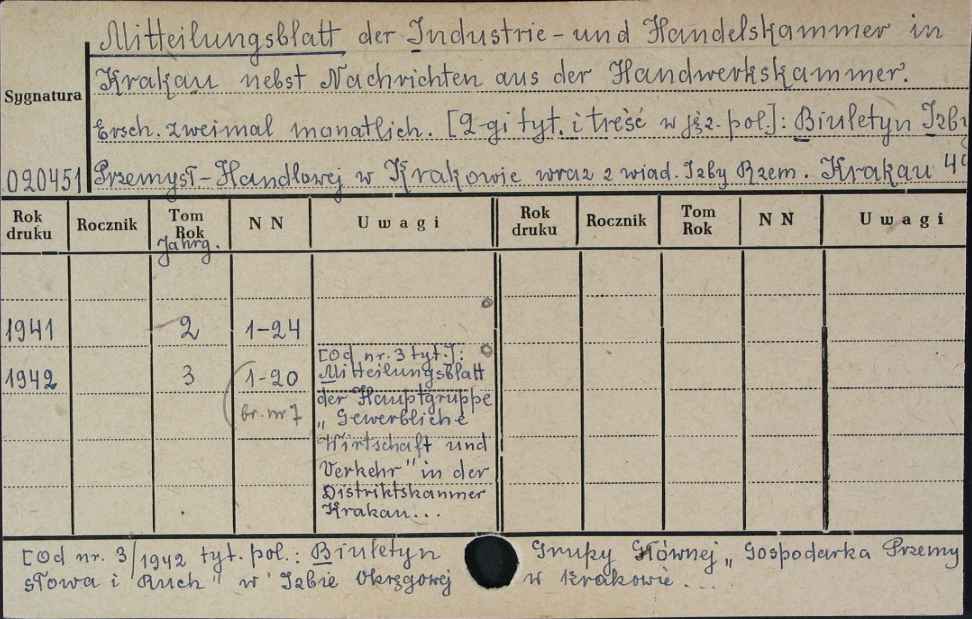 Mitteilungsblatt der Industrie- und Handelskammer in
Krakau nebst Nachrichten aus der Handwerkskammer.
Sygnatura
Ersch. zweimal monatlich. [2-gi tyt. i treść w jęz. pol.]: Biuletyn Izby
020451 Przemysł-Handlowej w Krakowie wraz z wiad. Izby Rzem. Krakau 4°
Rok druku Rocznik Tom Rok Jahrg. NN Uwagi Rok druku Rocznik Tom Rok NN Uwagi
1941 2 1-24
1942 3 1-20
br. nr 7
[Od nr. 3 tyt.]:
Mitteilungsblatt
der Hauptgruppe
„Gewerbliche
Wirtschaft und
Verkehr" in der
Distriktskammer
Krakau...
[Od nr. 3/1942 tyt. pol.: Biuletyn Grupy Głównej „Gospodarka Przemy
słowa i Ruch" w Izbie Okręgowej w Krakowie...